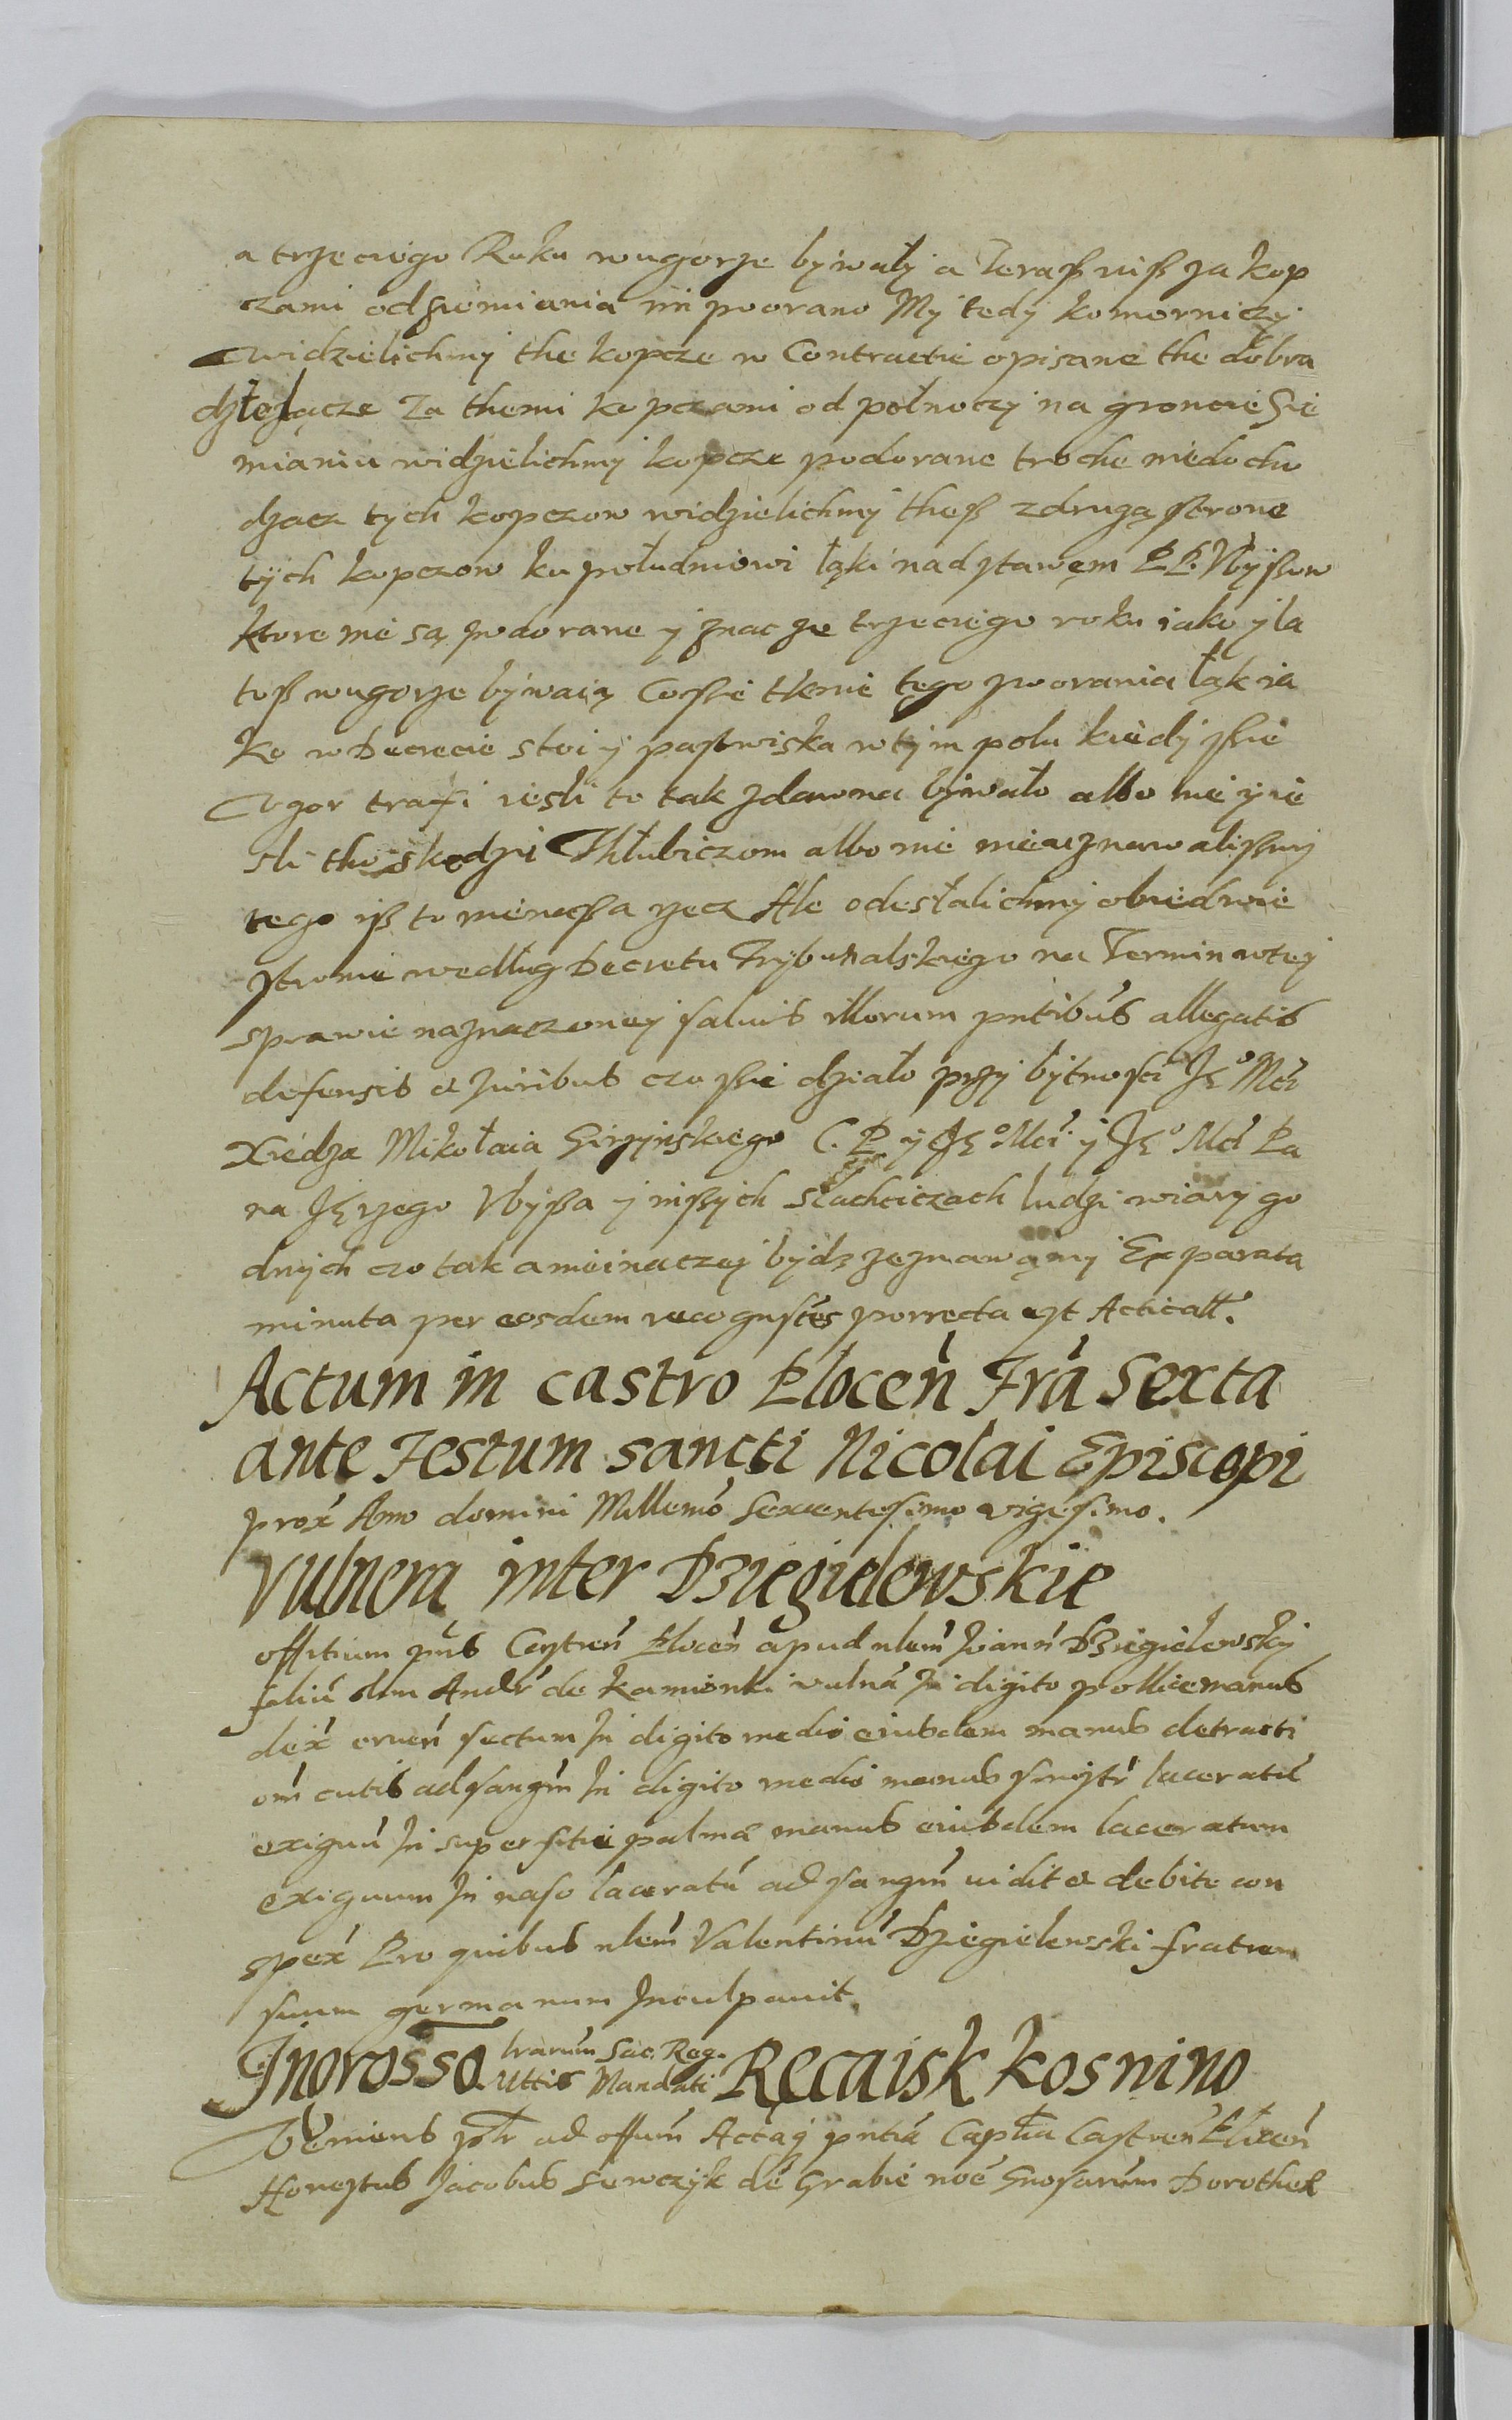 a trzeciego Roku wugorze bywały a Teraß niß za kop
czami odsiemiania nii poorano My tedy komorniczy
widzielichmy the kopcze w Contractie opisane the dobra
dzielącze Za themi kopczami od połnoczy na groncie Sie
mianiu widzielichmy kopcze podorane troche niedocho
dzacz tych kopczow widzielichmy theß zdrugą strone
tych kopczow ku południowi łąki nad stawęm PP. Vbyßow
ktore nie są podorane y znac ze trzeciego roku iako y la
toß wugorze bywaią Coßie thknie tego poorania łąk ia
ko w Decrecie stoi y pastwiska w tym polu kiedy ssie
Vgor trafi iesli to tak zdawna bywało albo nie y ie
sli tho skodzi Thłubiczom albo nie nieuznawalißmy
tego iß to nienaßa rzecz Ale odesłalichmy obiedwie
stronie według Decretu Trybunalskiego na Termin w tey
sprawie naznaczoney saluis illorum pntibus allegatis
defensis et Juribus czo ssie działo przy bytnosci Jeo Mci
Xiedza Mikołaia Girzynskiego C. P. y Jeo Mci y Jeo Mci Pa
na Jerzego Vbyßa y inßych Slachciczach ludzi wiary go
dnych czo tak a nieinaczey bydz zeznawąmy Ex parata
minuta per eosdem recognsctes porrecta est Acticatt.
Actum in castro Plocen Fra Sexta
ante Festum sancti Nicolai Episcopi
prox Anno domini Millemo Sexcentesimo vigesimo.
Vulnera inter Dziegielewskie
offitium pns Castren Plocen apud nlem Joann Dziegielewsky
filiu olim Andr de Kamionki vulna In digito pollice manus
dex cruen sectum In digito medio eiusdem manus detracti
om cutis ad sangm In digito medio manus sinistr laceratu
exiguu In superfitie palmæ manus eiusdem laceratum
exiguum In naso laceratu ad sangm vidit et debite con
spex Pro quibus nlem Valentinu Dziegielewski fratrem
suum germanum Inculpauit.
Inorossa lrarum Sac. Reg. Recaisk kosnino
uttis Mandati
Veniens ptr ad offum Actaq pntia Capłia Castren Płocen
Honestus Jacobus Sewczyk de Grabie noe Gnosarum Dorotheæ